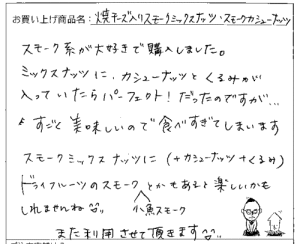 お買い上げ商品名：焼チーズ入りスモークミックスナッツ・スモークカシューナッツ
スモーク系が大好きで購入しました。
ミックスナッツに、カシューナッツとくるみが
入っていたらパーフェクト！だったのですが…
すごく美味しいので食べすぎてしまいます
スモークミックスナッツに（+カシューナッツ+くるみ）
ドライフルーツのスモークとかもあると楽しいかも
しれませんね
小魚スモーク
また利用させて頂きます